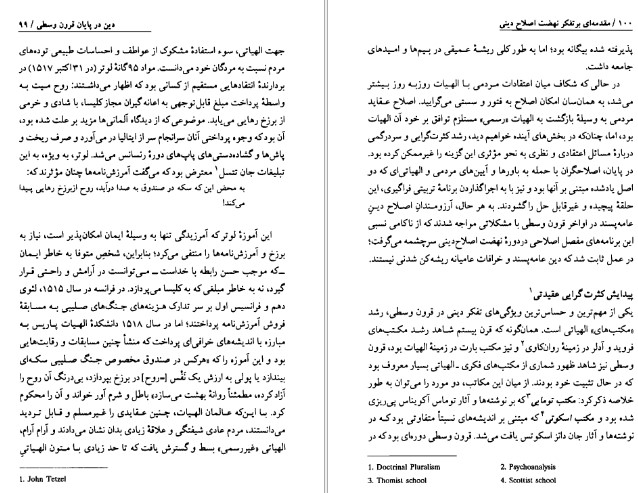 دین در پایان قرون وسطی / ۹۹
جهت الهیاتی، سوء استفادهٔ مشکوک از عواطف و احساسات طبیعی توده‌های
مردم نسبت به مردگان خود می‌دانست. مواد ۹۵گانهٔ لوتر (در ۳۱ اکتبر ۱۵۱۷)
بردارندهٔ انتقادهایی مستقیم از کسانی بود که اظهار می‌داشتند: روح میت به
واسطهٔ پرداخت مبلغ قابل‌توجهی به اعانه گیران مجاز کلیسا، با شادی و خرمی
از برزخ رهایی می‌یابد. موضوعی که از دیدگاه آلمانی‌ها مزید بر علت شده بود،
آن بود که وجوه پرداختی آنان سرانجام سر از ایتالیا در می‌آورد و صرف ریخت و
پاش‌ها و گشاده‌دستی‌های پاپ‌های دورهٔ رنسانس می‌شد. لوتر، به ویژه، به این
تبلیغات جان تتسل۱ معترض بود که می‌گفت آمرزش‌نامه‌ها چنان مؤثرند که:
به محض این که سکه در صندوق به صدا درآید، روح ازبرزخ رهایی پیدا
می‌کند!
این آموزهٔ لوتر که آمرزیدگی تنها به وسیلهٔ ایمان امکان‌پذیر است، نیاز به
برزخ و آمرزش‌نامه‌ها را منتفی می‌کرد؛ بنابراین، شخص متوفا به خاطر ایمان
ـ‌که موجب حسن رابطه با خداست ـ می‌توانست در آرامش و راحتی قرار
گیرد، نه به خاطر مبلغی که به کلیسا می‌پردازد. در فرانسه در سال ۱۵۱۵، لئوی
دهم و فرانسیس اول بر سر تدارک هزینه‌های جنگ‌های صلیبی به مسابقهٔ
فروش آمرزش‌نامه پرداختند؛ اما در سال ۱۵۱۸ دانشکدهٔ الهیات پاریس به
مبارزه با اندیشه‌های خرافی‌ای پرداخت که منشأ چنین مسابقات و رقابت‌هایی
بود و این آموزه را که «هرکس در صندوق مخصوص جنگ صلیبی سکه‌ای
بیندازد یا پولی به ارزش یک نَفْس [=روح] در برزخ بپردازد، بی‌درنگ آن روح را
آزاد کرده، مطمئناً روانهٔ بهشت می‌سازد» باطل و شرم آور خواند و آن را محکوم
کرد. با این‌که عالمان الهیات، چنین عقایدی را غیرمسلم و قابل تردید
می‌دانستند، مردم عادی شیفتگی و علاقهٔ زیادی بدان نشان می‌دادند و آرام آرام،
الهیاتی «غیررسمی» بسط و گسترش یافت که تا حد زیادی با متون الهیاتی
1. John Tetzel
۱۰۰ / مقدمه‌ای بر تفکر نهضت اصلاح دینی
پذیرفته شده بیگانه بود؛ اما به طور کلی ریشهٔ عمیقی در بیم‌ها و امیدهای
جامعه داشت.
در حالی که شکاف میان اعتقادات مردمی با الهیات روزبه روز بیشتر
می‌شد، به همان‌سان امکان اصلاح به فتور و سستی می‌گرایید. اصلاح عقاید
مردمی به وسیلهٔ بازگشت به الهیات «رسمی» مستلزم توافق بر خود آن الهیات
بود، اما، چنان‌که در بخش‌های آینده خواهیم دید، رشد کثرت‌گرایی و سردرگمی
دربارهٔ مسائل اعتقادی و نظری به نحو مؤثری این گزینه را غیرممکن کرده بود.
در پایان، اصلاحگران با حمله به باورها و آیین‌های مردمی و الهیاتی‌ای که دو
اصل یادشده مبتنی بر آنها بود و نیز با به اجرا گذاردن برنامهٔ تربیتی فراگیری، این
حلقهٔ پیچیده و غیرقابل حل را گشودند. به هر حال، آرزومندان اصلاح دین
عامه‌پسند در اواخر قرون وسطی با مشکلاتی مواجه شدند که از ناکامی نسبی
این برنامه‌های مفصل اصلاحی در دورهٔ نهضت اصلاح‌دینی سرچشمه می‌گرفت؛
در عمل ثابت شد که دین عامه‌پسند و خرافات عامیانه ریشه‌کن شدنی نیستند.
پیدایش کثرت‌گرایی عقیدتی۱
یکی از مهم‌ترین و حساس‌ترین ویژگی‌های تفکر دینی در قرون وسطی، رشد
«مکتب‌های» الهیاتی است. همان‌گونه که قرن بیستم شاهد رشد مکتب‌های
فروید و آدلر در زمینهٔ روان‌کاوی۲ و نیز مکتب بارت در زمینهٔ الهیات بود، قرون
وسطی نیز شاهد ظهور شماری از مکتب‌های فکری ـ الهیاتی بسیار معروف بود
که در حال تثبیت خود بودند. از میان این مکاتب، دو مورد را می‌توان به طور
خلاصه ذکر کرد: مکتب تومایی۳ که بر نوشته‌ها و آثار توماس آکویناس پی‌ریزی
شده بود و مکتب اسکوتی۴ که مبتنی بر اندیشه‌های نسبتاً متفاوتی بود که در
نوشته‌ها و آثار جان دانز اسکوتس یافت می‌شد. قرون وسطی دوره‌ای بود که
1. Doctrinal Pluralism 2. Psychoanalysis
3. Thomist school 4. Scottist school